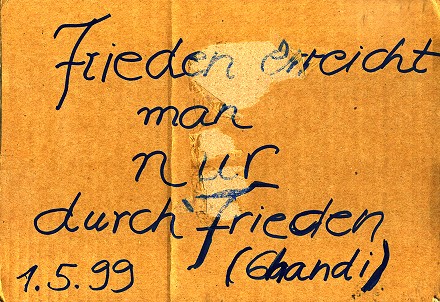 Frieden erreicht
man
nur
durch Frieden
1.5.99 (Ghandi)